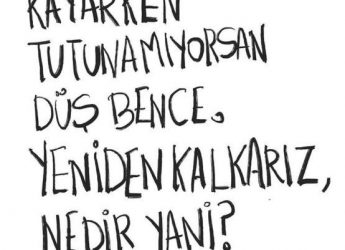 KAYARKEN
TUTUNAMIYORSAN
DÜŞ BENCE.
YENİDEN KALKARIZ,
NEDİR YANİ?